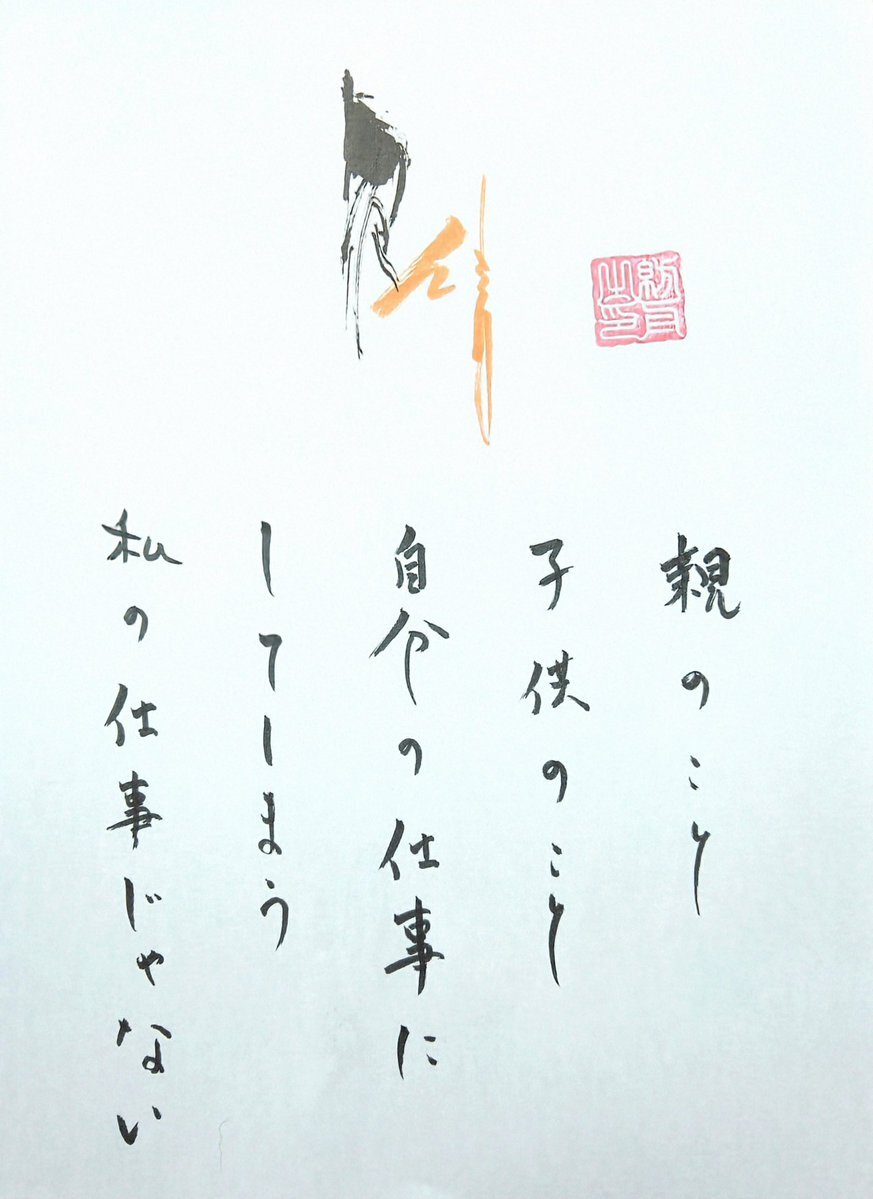 親のこと
子供のこと
自分の仕事に
してしまう
私の仕事じゃない